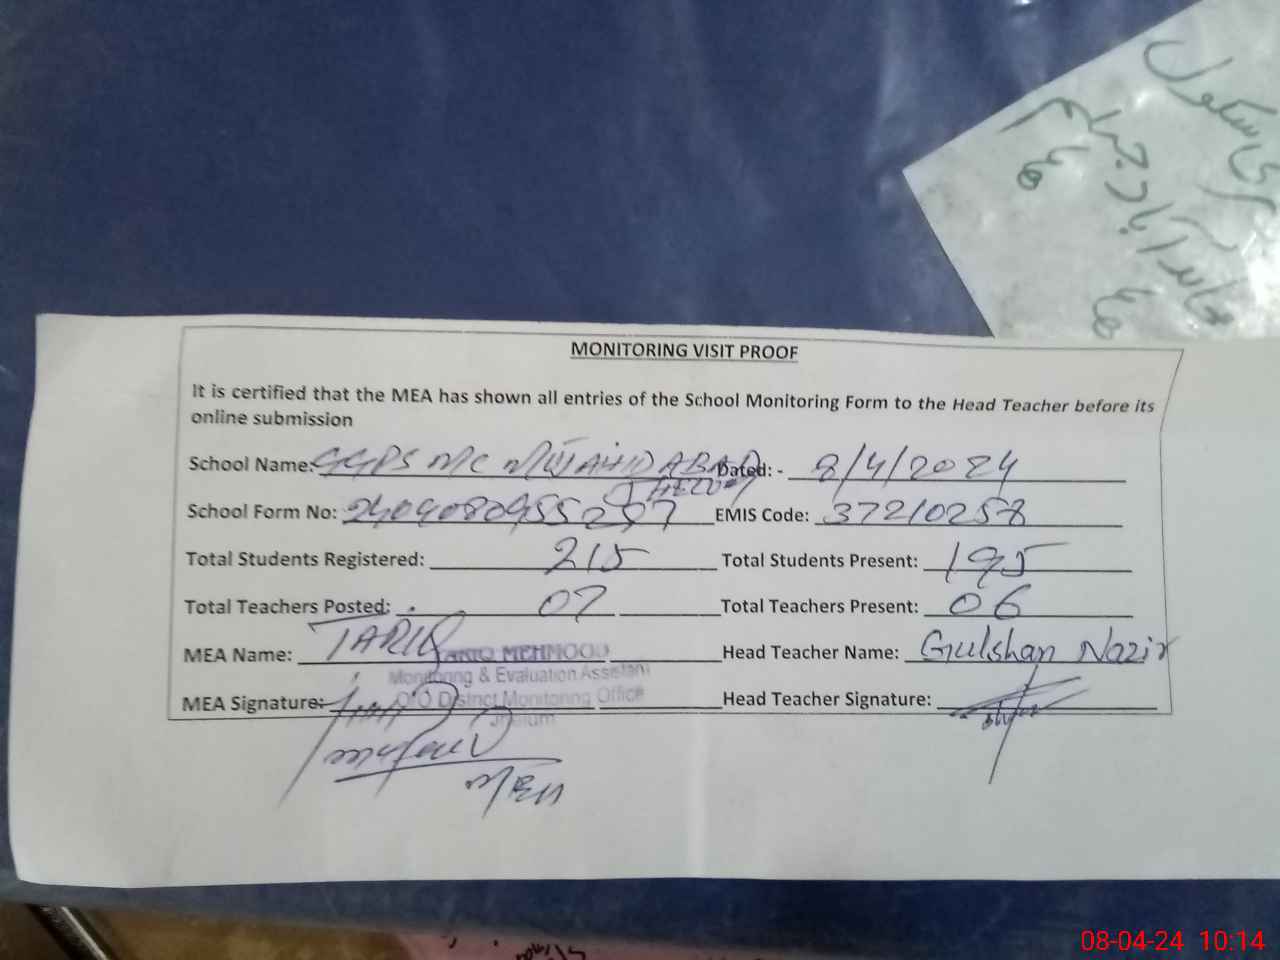 سکول
مجاہد آباد جہلم
MONITORING VISIT PROOF
It is certified that the MEA has shown all entries of the School Monitoring Form to the Head Teacher before its
online submission
School Name: GGPS MC MUJAHID ABAD Dated: - 8/4/2024
JHELUM
School Form No: EMIS Code: 37210258
Total Students Registered: 215 Total Students Present: 195
Total Teachers Posted: 07 Total Teachers Present: 06
MEA Name: TARIQ Head Teacher Name: Gulshan Nazir
TARIQ MEHMOOD
Monitoring & Evaluation Assistant
MEA Signature: Head Teacher Signature:
O/O District Monitoring Office
Jhelum
MEA
08-04-24 10:14